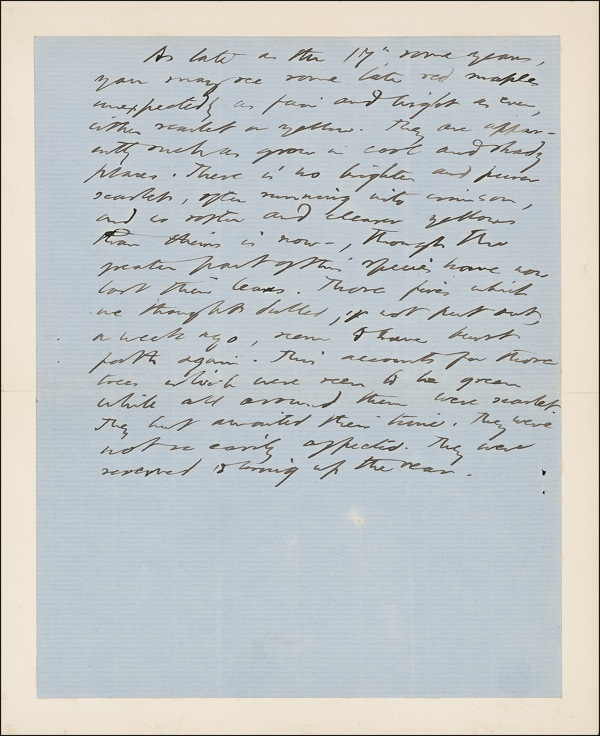 As late as the 17th, some years,
you may see some late red maples
unexpectedly as fair and bright as ever,
either scarlet or yellow. They are appar-
ently such as grow in cool and shady
places. There is no brighter and purer
scarlet, often running into crimson,
and no softer and clearer yellows
than theirs is now-, though the
greater part of this species have now
lost their leaves. Those fires which
we thought dulled, if not put out,
a week ago, seem to have burst
forth again. This accounts for those
trees which were seen to be green
while all around them were scarlet.
They but awaited their time. They were
not so easily affected. They were
reserved to bring up the rear.